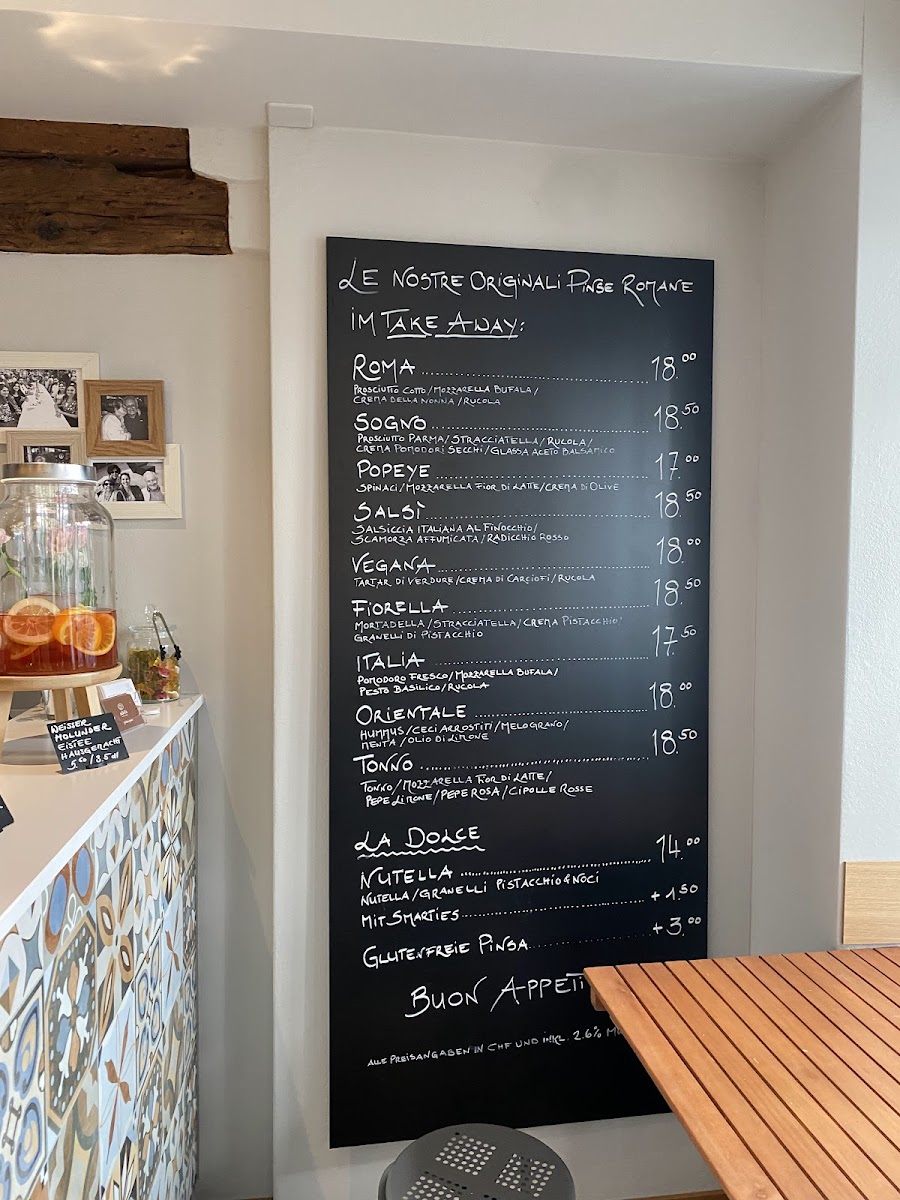 LE NOSTRE ORIGINALI PINSE ROMANE
IM TAKE AWAY:
ROMA 18.00
PROSCIUTTO COTTO/MOZZARELLA BUFALA/
CREMA DELLA NONNA/RUCOLA
SOGNO 18.50
PROSCIUTTO PARMA/STRACCIATELLA/RUCOLA/
CREMA POMODORI SECCHI/GLASSA ACETO BALSAMICO
POPEYE 17.00
SPINACI/MOZZARELLA FIOR DI LATTE/CREMA DI OLIVE
SALSÌ 18.50
SALSICCIA ITALIANA AL FINOCCHIO/
SCAMORZA AFFUMICATA/RADICCHIO ROSSO
VEGANA 18.00
TARTAR DI VERDURE/CREMA DI CARCIOFI/RUCOLA
FIORELLA 18.50
MORTADELLA/STRACCIATELLA/CREMA PISTACCHIO/
GRANELLI DI PISTACCHIO
ITALIA 17.50
POMODORO FRESCO/MOZZARELLA BUFALA/
PESTO BASILICO/RUCOLA
ORIENTALE 18.00
HUMMUS/CECI ARROSTITI/MELOGRANO/
MENTA/OLIO DI LIMONE
TONNO 18.50
TONNO/MOZZARELLA FIOR DI LATTE/
PEPE LIMONE/PEPE ROSA/CIPOLLE ROSSE
LA DOLCE
NUTELLA 14.00
NUTELLA/GRANELLI PISTACCHIO & NOCI
MIT SMARTIES +1.50
GLUTENFREIE PINSA +3.00
BUON APPETI
ALLE PREISANGABEN IN CHF UND INKL. 2.6%
WEISSER
HOLUNDER
EISTEE
HAUSGEMACHT
5.50/3.5dl